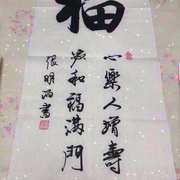 福
心樂人增壽
家和福滿門
張明書